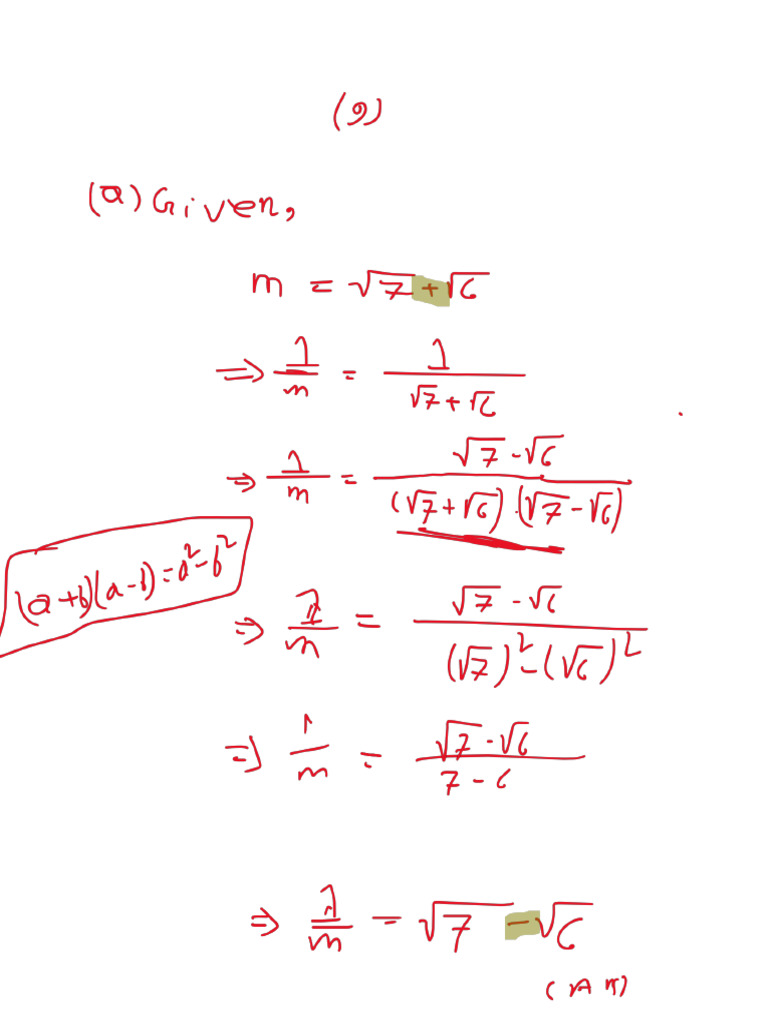 (9)
(a) Given,
m = √7 + √6
⇒ 1/m = 1/(√7 + √6)
⇒ 1/m = (√7 - √6)/((√7 + √6) · (√7 - √6))
(a + b)(a - b) = a² - b²
⇒ 1/m = (√7 - √6)/((√7)² - (√6)²)
⇒ 1/m = (√7 - √6)/(7 - 6)
⇒ 1/m = √7 - √6